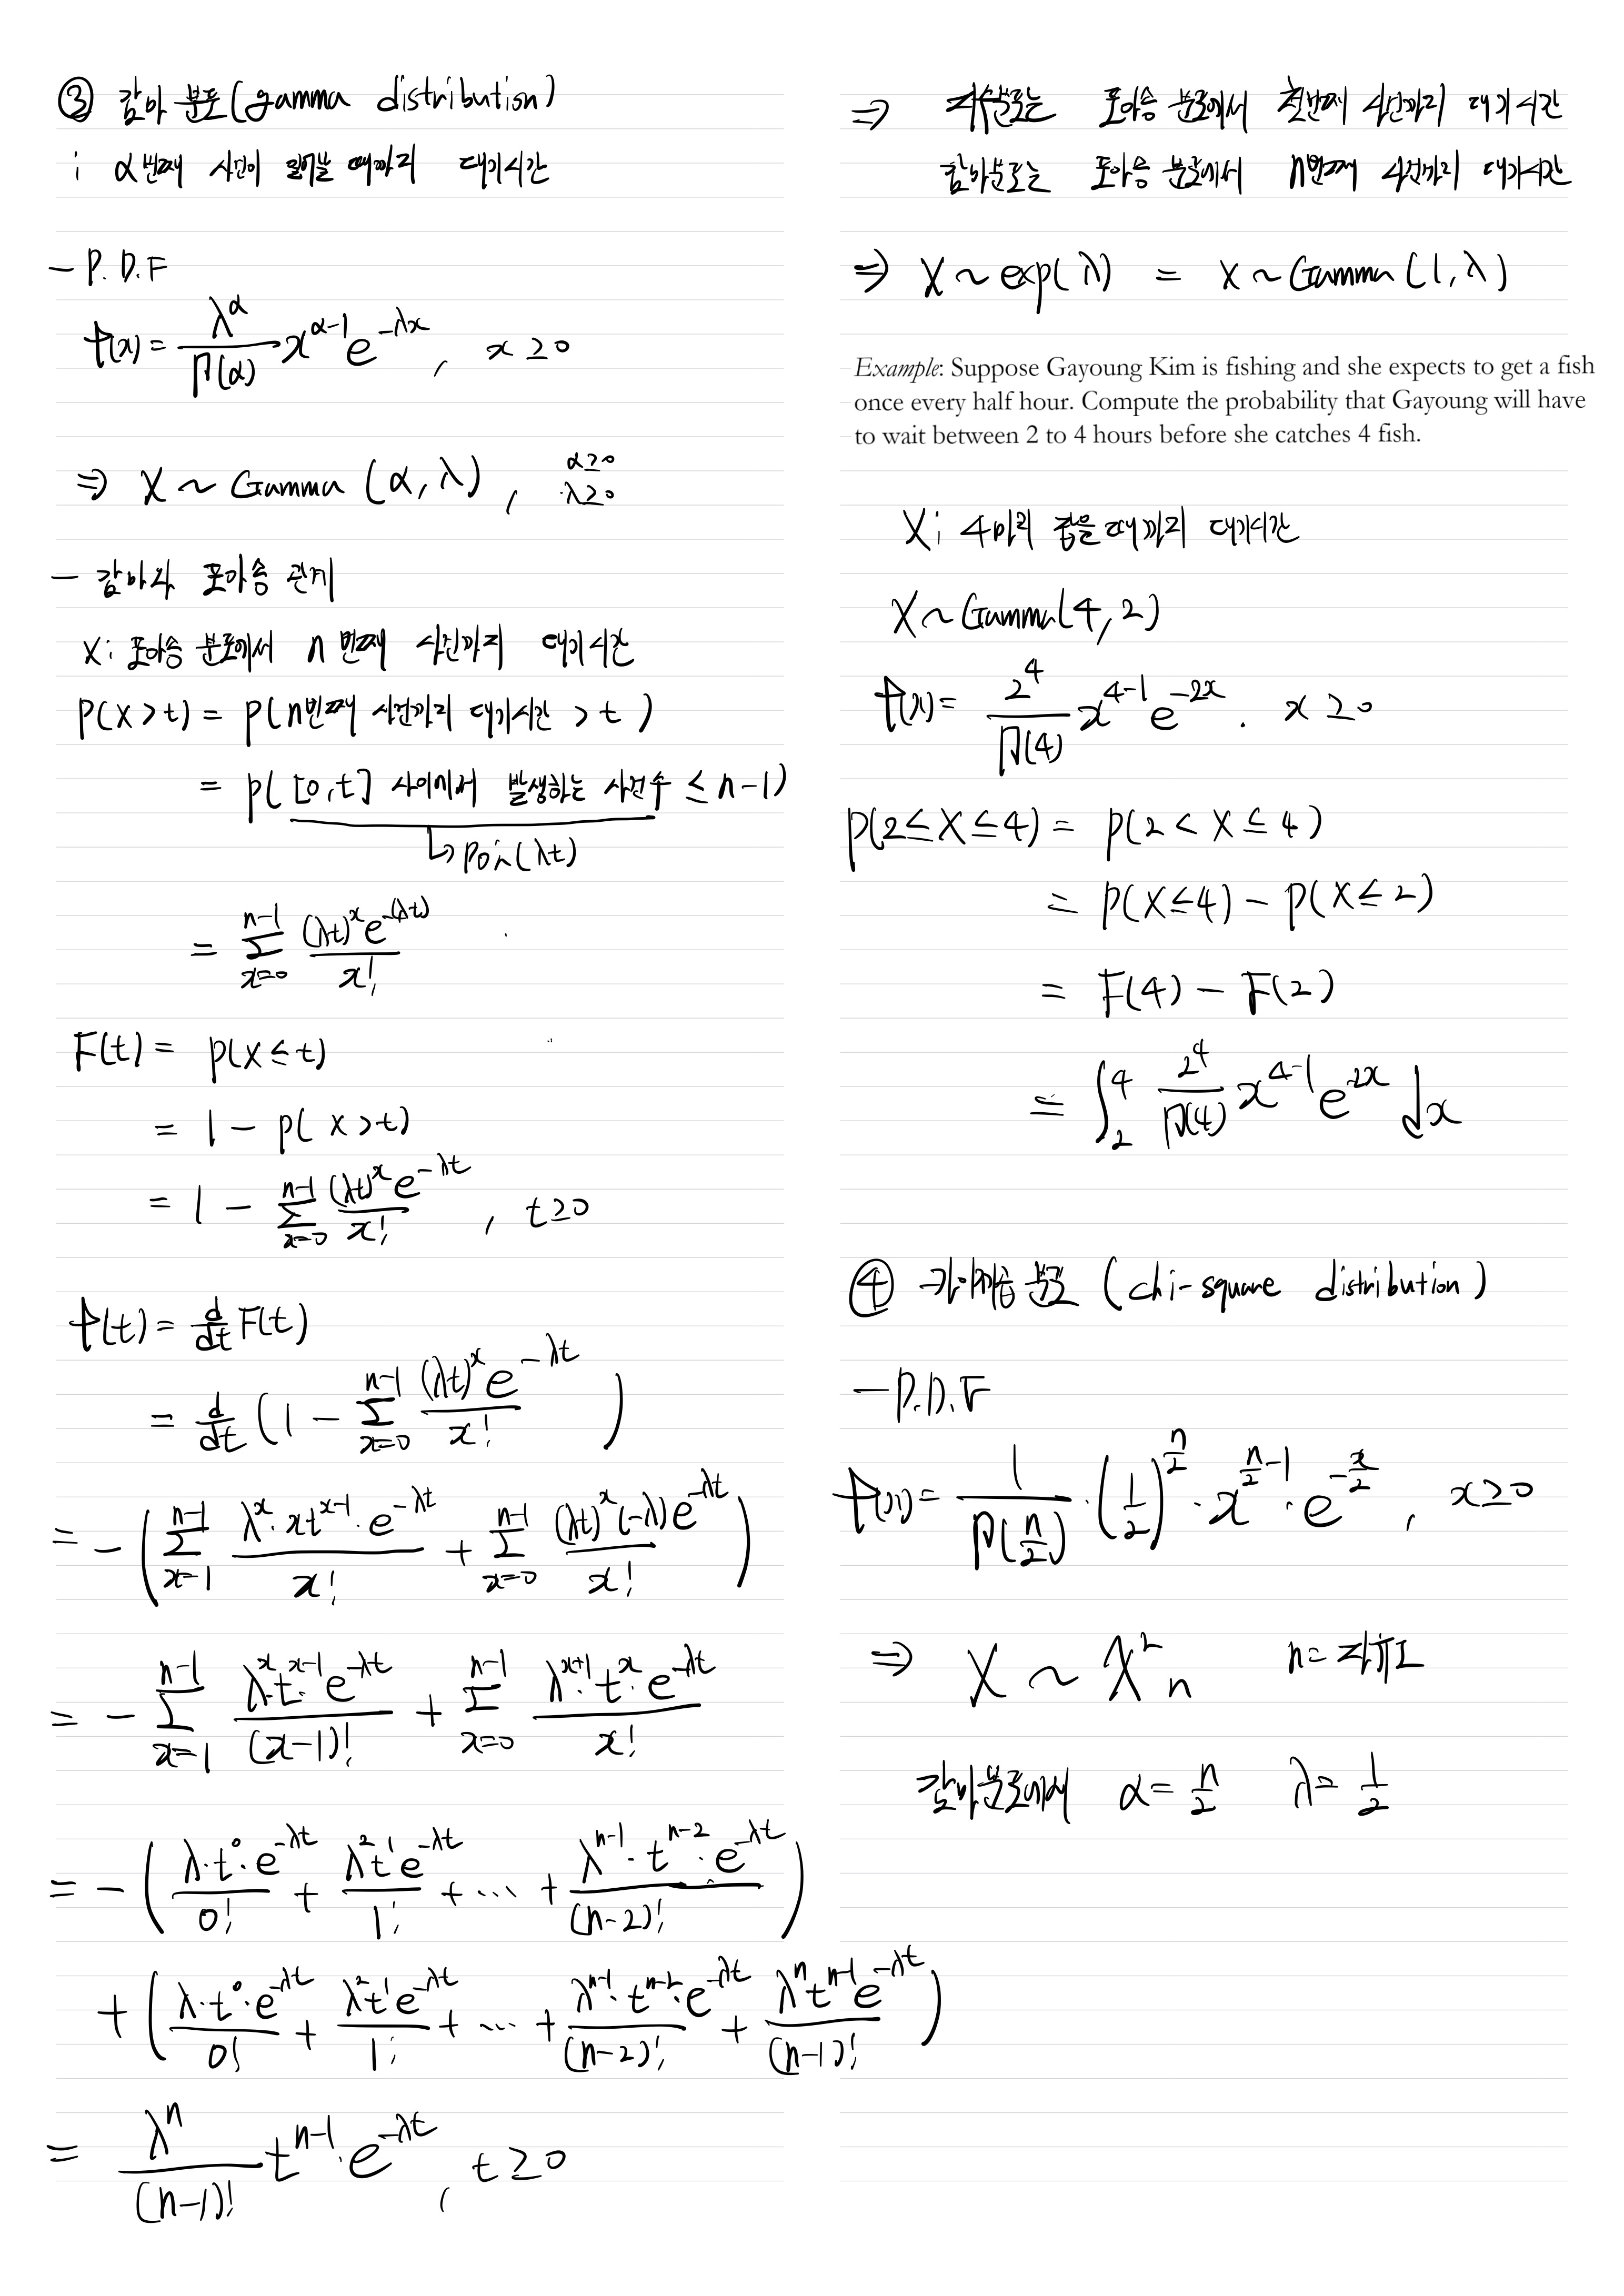 ③ 감마 분포 (gamma distribution)
: α번째 사건이 일어날 때까지 대기시간
- P.D.F
f(x) = λ^α / Γ(α) x^(α-1) e^(-λx), x ≥ 0
⇒ X ~ Gamma (α, λ), α≥0 λ≥0
- 감마와 포아송 관계
X: 포아송 분포에서 n번째 사건까지 대기시간
P(X>t) = P(n번째 사건까지 대기시간 > t)
= P([0,t] 사이에서 발생하는 사건수 ≤ n-1)
↳ Poi(λt)
= Σ_(x=0)^(n-1) (λt)^x e^(-(λt)) / x!
F(t) = P(X≤t)
= 1 - P(X>t)
= 1 - Σ_(x=0)^(n-1) (λt)^x e^(-λt) / x!, t≥0
f(t) = d/dt F(t)
= d/dt (1 - Σ_(x=0)^(n-1) (λt)^x e^(-λt) / x!)
= -(Σ_(x=1)^(n-1) λ^x·xt^(x-1)·e^(-λt) / x! + Σ_(x=0)^(n-1) (λt)^x(-λ)e^(-λt) / x!)
= - Σ_(x=1)^(n-1) λ^x·t^(x-1)·e^(-λt) / (x-1)! + Σ_(x=0)^(n-1) λ^(x+1)·t^x·e^(-λt) / x!
= -(λ·t^0·e^(-λt) / 0! + λ^2t^1e^(-λt) / 1! + ··· + λ^(n-1)·t^(n-2)·e^(-λt) / (n-2)!)
+ (λ·t^0·e^(-λt) / 0! + λ^2t^1e^(-λt) / 1! + ··· + λ^(n-1)·t^(n-2)·e^(-λt) / (n-2)! + λ^n t^(n-1) e^(-λt) / (n-1)!)
= λ^n / (n-1)! t^(n-1)·e^(-λt), t ≥ 0
⇒ 지수분포는 포아송 분포에서 첫번째 사건까지 대기시간
감마분포는 포아송 분포에서 n번째 사건까지 대기시간
⇒ X ~ exp(λ) = X ~ Gamma (1, λ)
Example: Suppose Gayoung Kim is fishing and she expects to get a fish
once every half hour. Compute the probability that Gayoung will have
to wait between 2 to 4 hours before she catches 4 fish.
X: 4마리 잡을 때까지 대기시간
X ~ Gamma(4, 2)
f(x) = 2^4 / Γ(4) x^(4-1) e^(-2x). x ≥ 0
P(2≤X≤4) = P(2 < X ≤ 4)
= P(X≤4) - P(X≤2)
= F(4) - F(2)
= ∫_2^4 2^4 / Γ(4) x^(4-1) e^(-2x) dx
④ 카이제곱 분포 (chi-square distribution)
- P.D.F
f(x) = 1 / Γ(n/2) · (1/2)^(n/2) · x^(n/2-1) · e^(-x/2), x≥0
⇒ X ~ χ²_n n = 자유도
감마분포에서 α = n/2 λ = 1/2